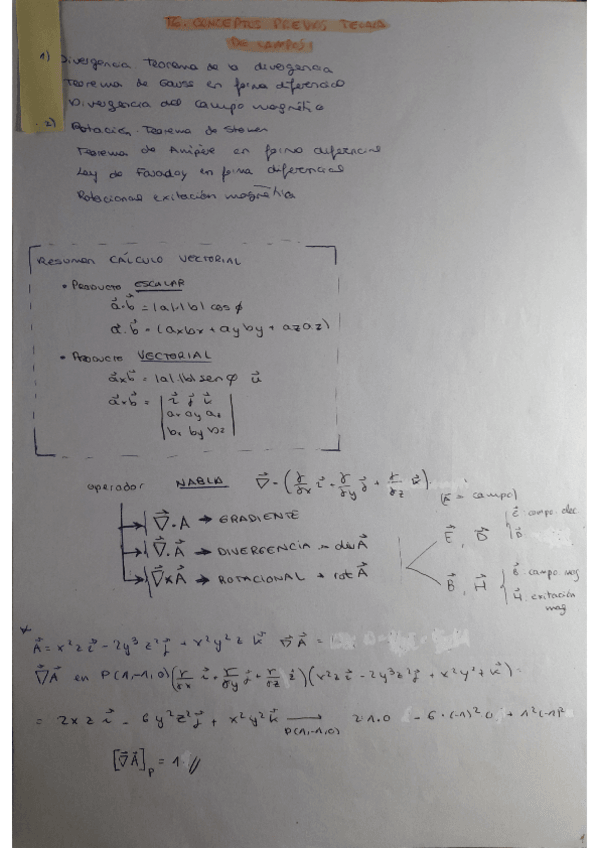 T6. CONCEPTOS PREVIOS TEORIA
DE CAMPOS:
1) Divergencia. Teorema de la divergencia
Teorema de Gauss en forma diferencial
Divergencia del campo magnético
2) Rotación. Teorema de Stokes
Teorema de Ampère en forma diferencial
Ley de Faraday en forma diferencial
Rotacional exitación magnética
Resumen CÁLCULO VECTORIAL
• Producto ESCALAR
a⃗·b⃗ = |a|·|b| cos φ
a⃗·b⃗ = (axbx + ayby + azaz)
• Producto VECTORIAL
a⃗xb⃗ = |a|·|b| sen φ u⃗
a⃗xb⃗ = | i⃗ j⃗ k⃗
ax ay az
bx by bz |
operador NABLA ∇⃗ = (δ/δx i⃗ + δ/δy j⃗ + δ/δz k⃗)
(A⃗ = campo)
∇⃗·A → GRADIENTE
∇⃗·A⃗ → DIVERGENCIA → div A⃗
∇⃗xA⃗ → ROTACIONAL → rot A⃗
E⃗, D⃗
E⃗ campo elec
D⃗
B⃗, H⃗
B⃗ campo mag
H⃗ exitación
mag
*
A⃗ = x²z i⃗ - 2y³z² j⃗ + x²y²z k⃗ ∇⃗A⃗ =
∇⃗A⃗ en P(1,-1,0) (δ/δx i⃗ + δ/δy j⃗ + δ/δz k⃗)(x²z i⃗ - 2y³z² j⃗ + x²y²z k⃗) =
= 2xz i⃗ - 6y²z² j⃗ + x²y² k⃗ → P(1,-1,0) 2·1·0 - 6·(-1)²·0 + 1²(-1)²
[∇⃗A⃗]p = 1 //
1